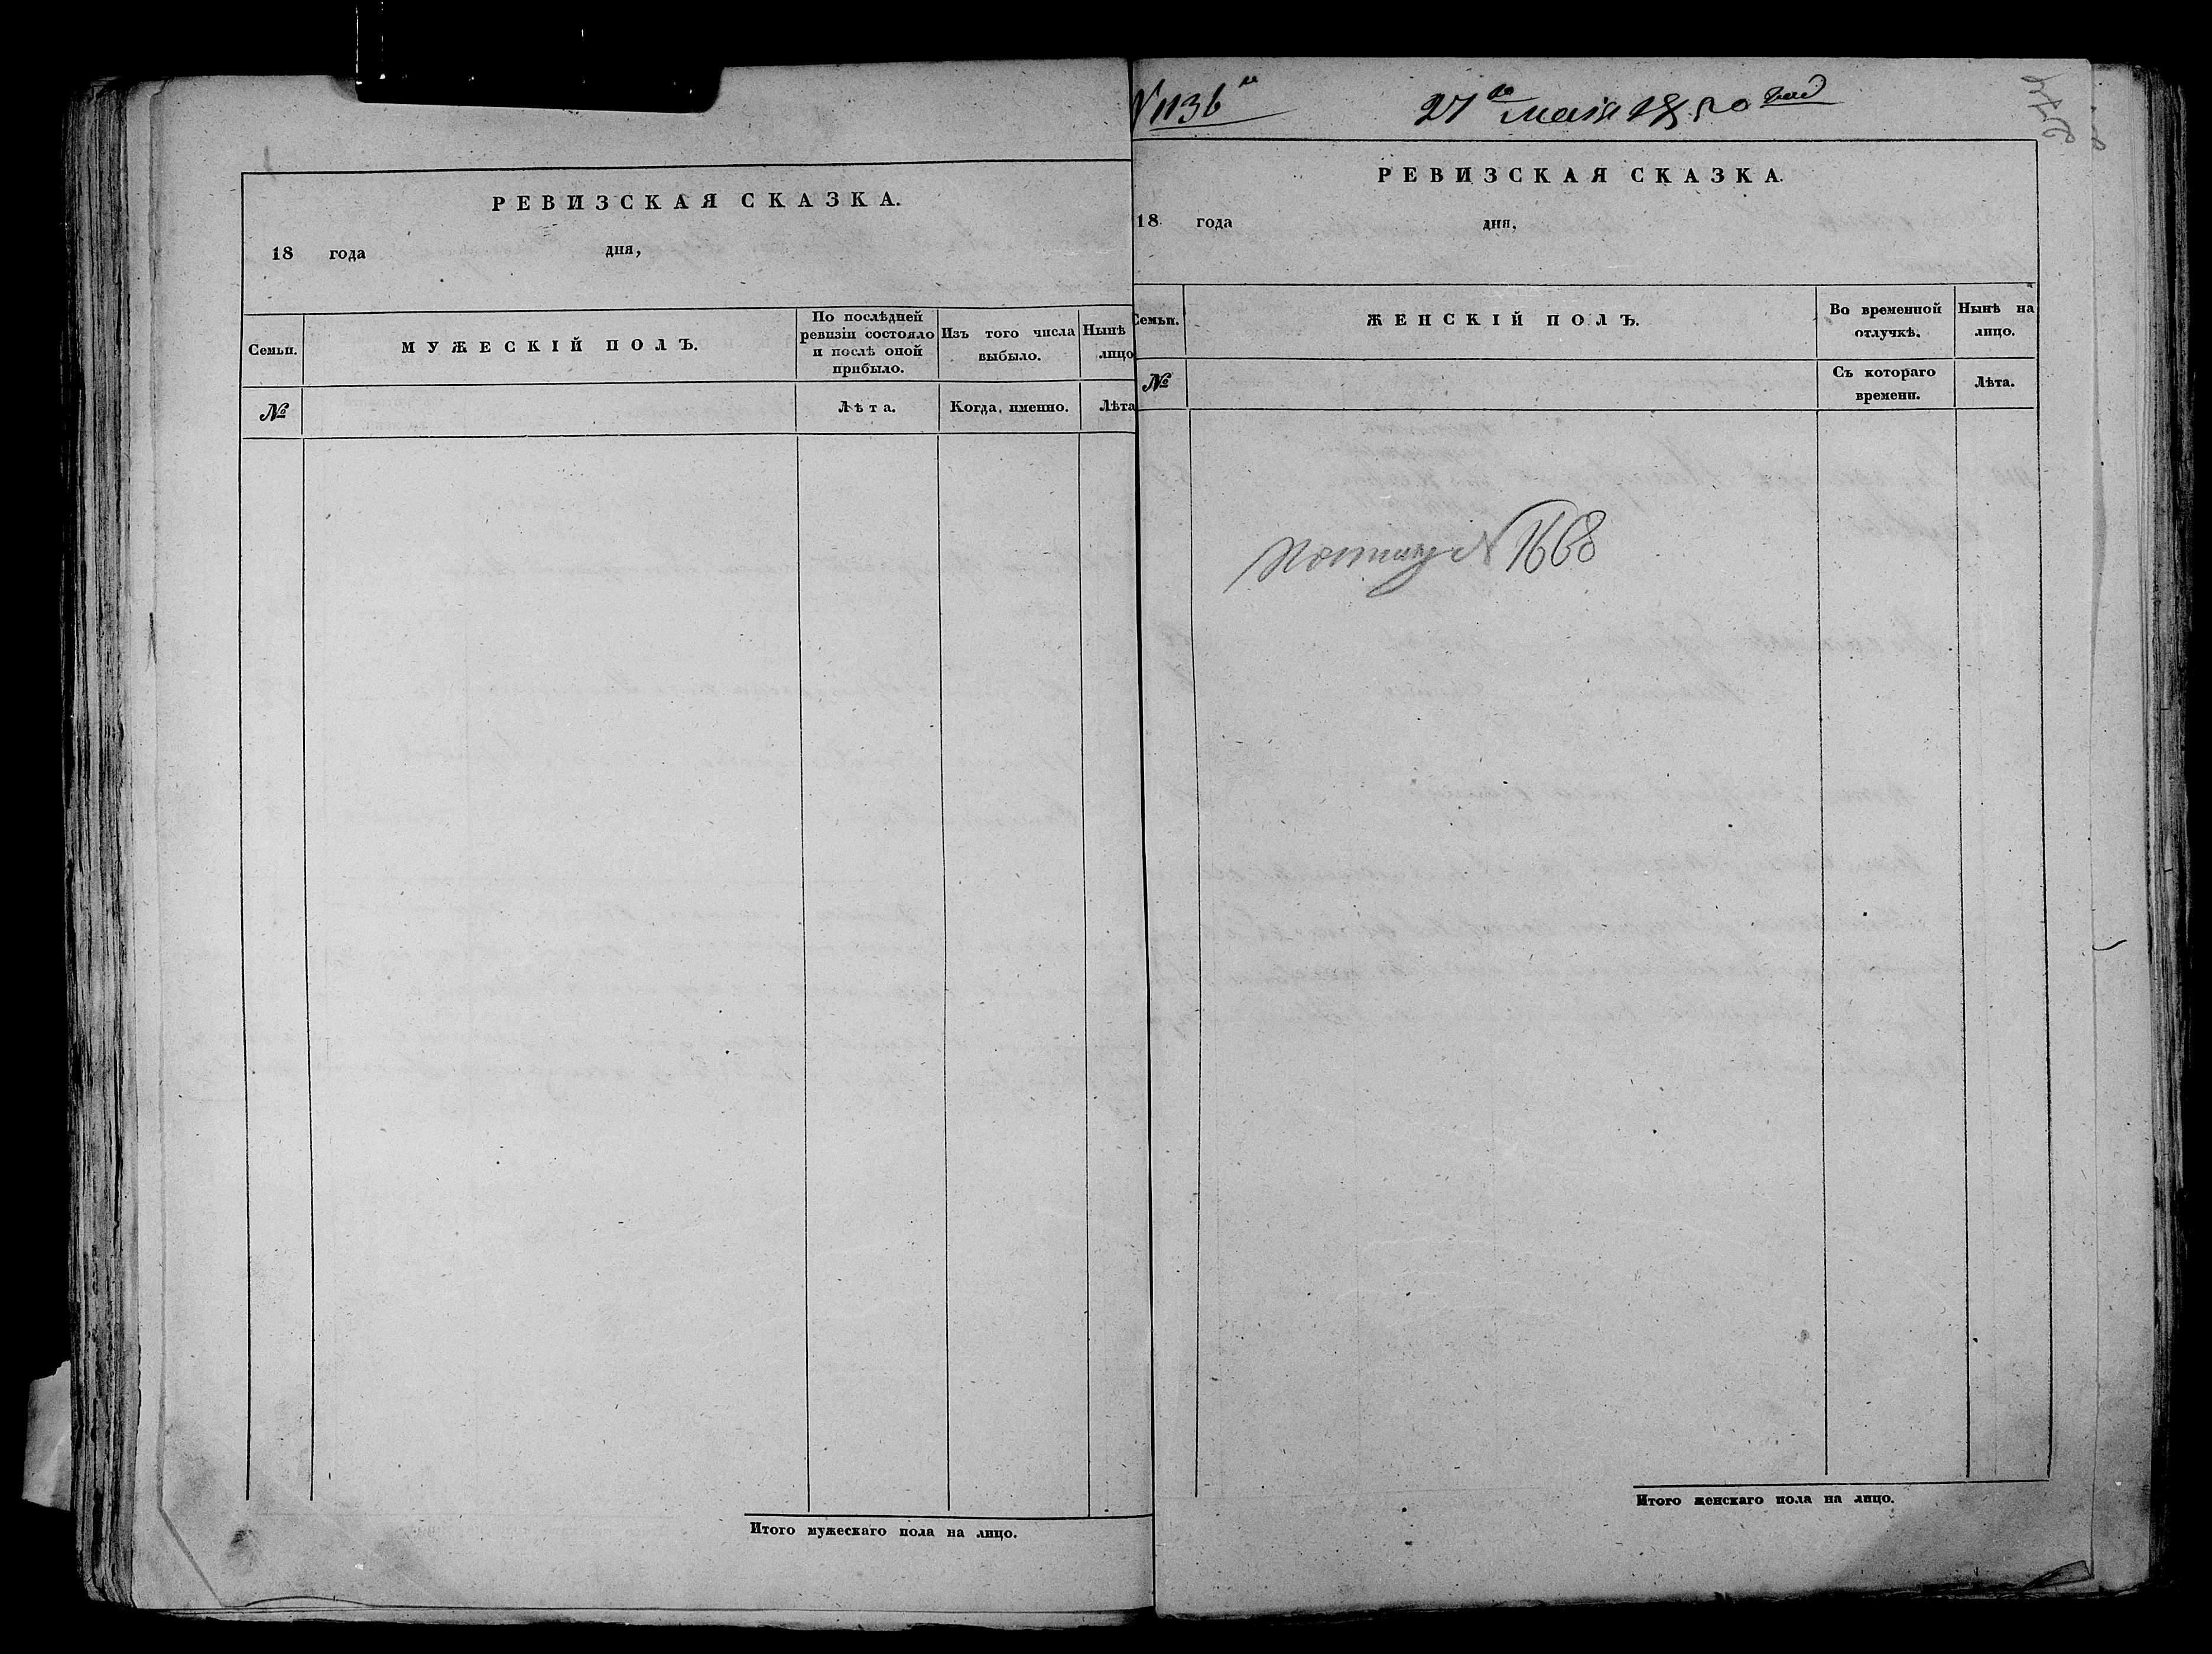 РЕВИЗСКАЯ СКАЗКА.
18 года дня,
Семьи.
МУЖЕСКІЙ ПОЛЪ.
По послѣдней
ревизіи состояло
и послѣ оной
прибыло.
Изъ того числа
выбыло.
Нынѣ
лицо
№
Лѣта.
Когда, именно.
Лѣта
Итого мужескаго пола на лицо.
N 1136
27 маія 1850 года
РЕВИЗСКАЯ СКАЗКА.
18 года дня,
Семьи.
ЖЕНСКІЙ ПОЛЪ.
Во временной
отлучкѣ.
Нынѣ на
лицо.
№
Съ котораго
времени.
Лѣта.
N 1668
Итого женскаго пола на лицо.